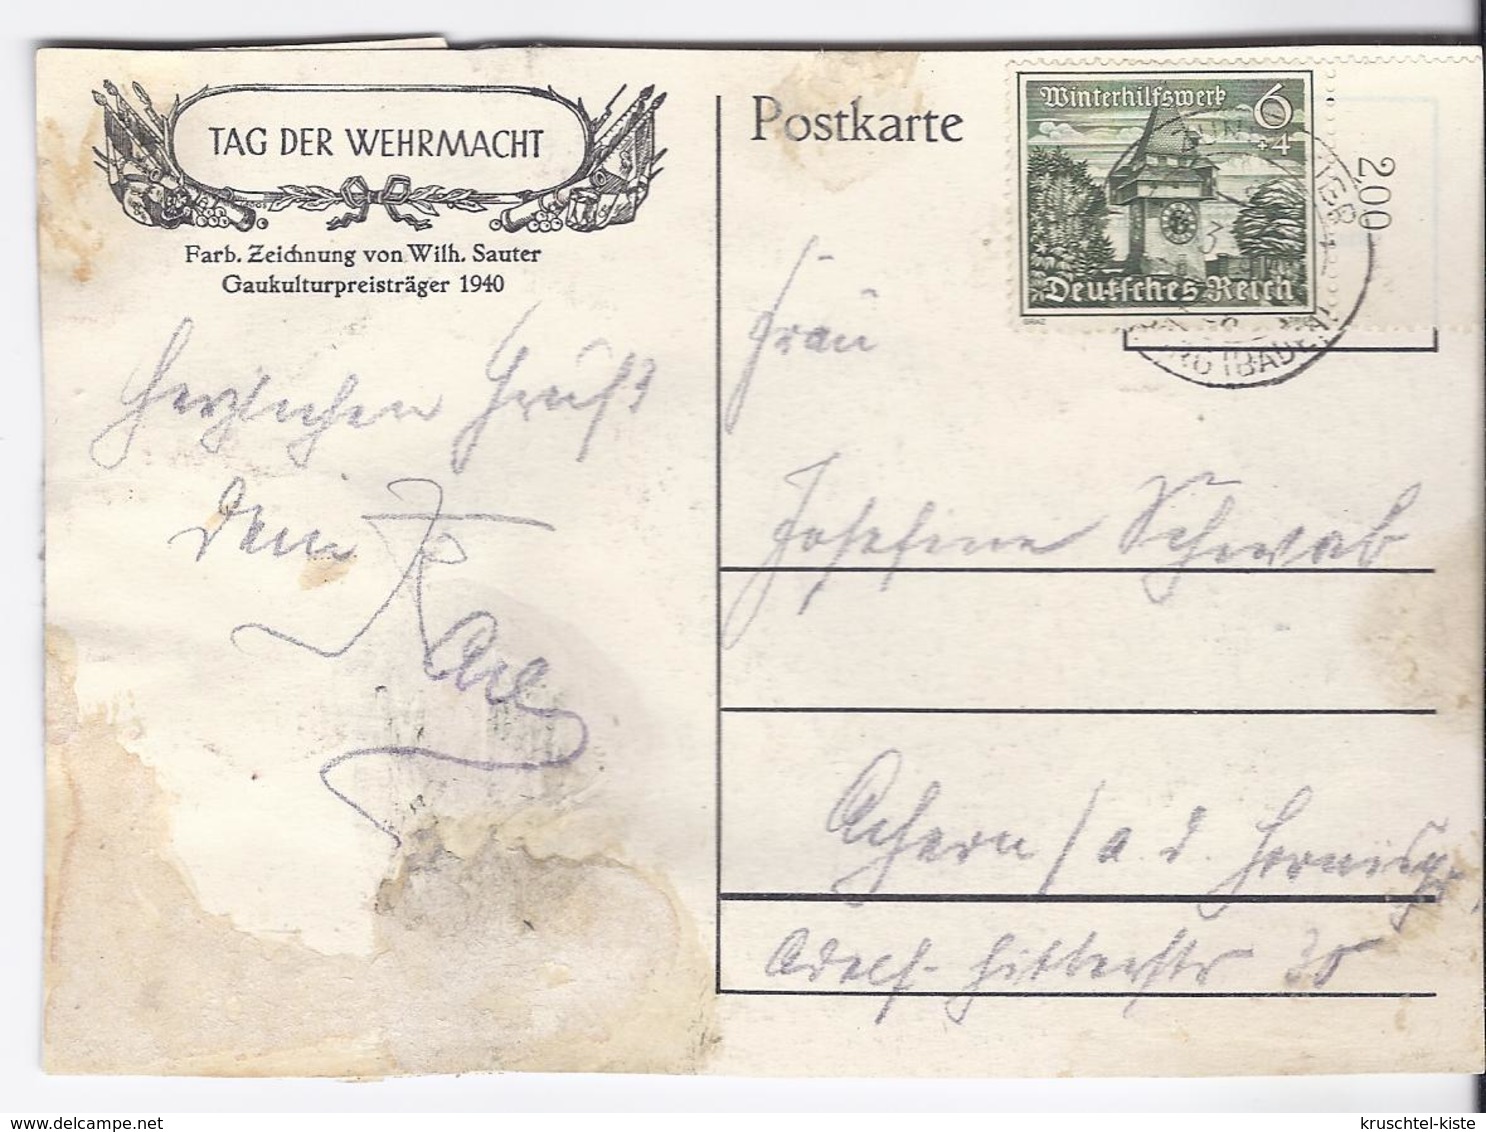 TAG DER WEHRMACHT
Farb. Zeichnung von Wilh. Sauter
Gaukulturpreisträger 1940
Herzlichen Gruß
Postkarte
Winterhilfswerk
6
+4
Deutsches Reich
200
(BADEN)
Frau
Josefine Schwab
Achern / a. d.
Adolf-Hitlerstr
delcampe.net
kruschtel-kiste